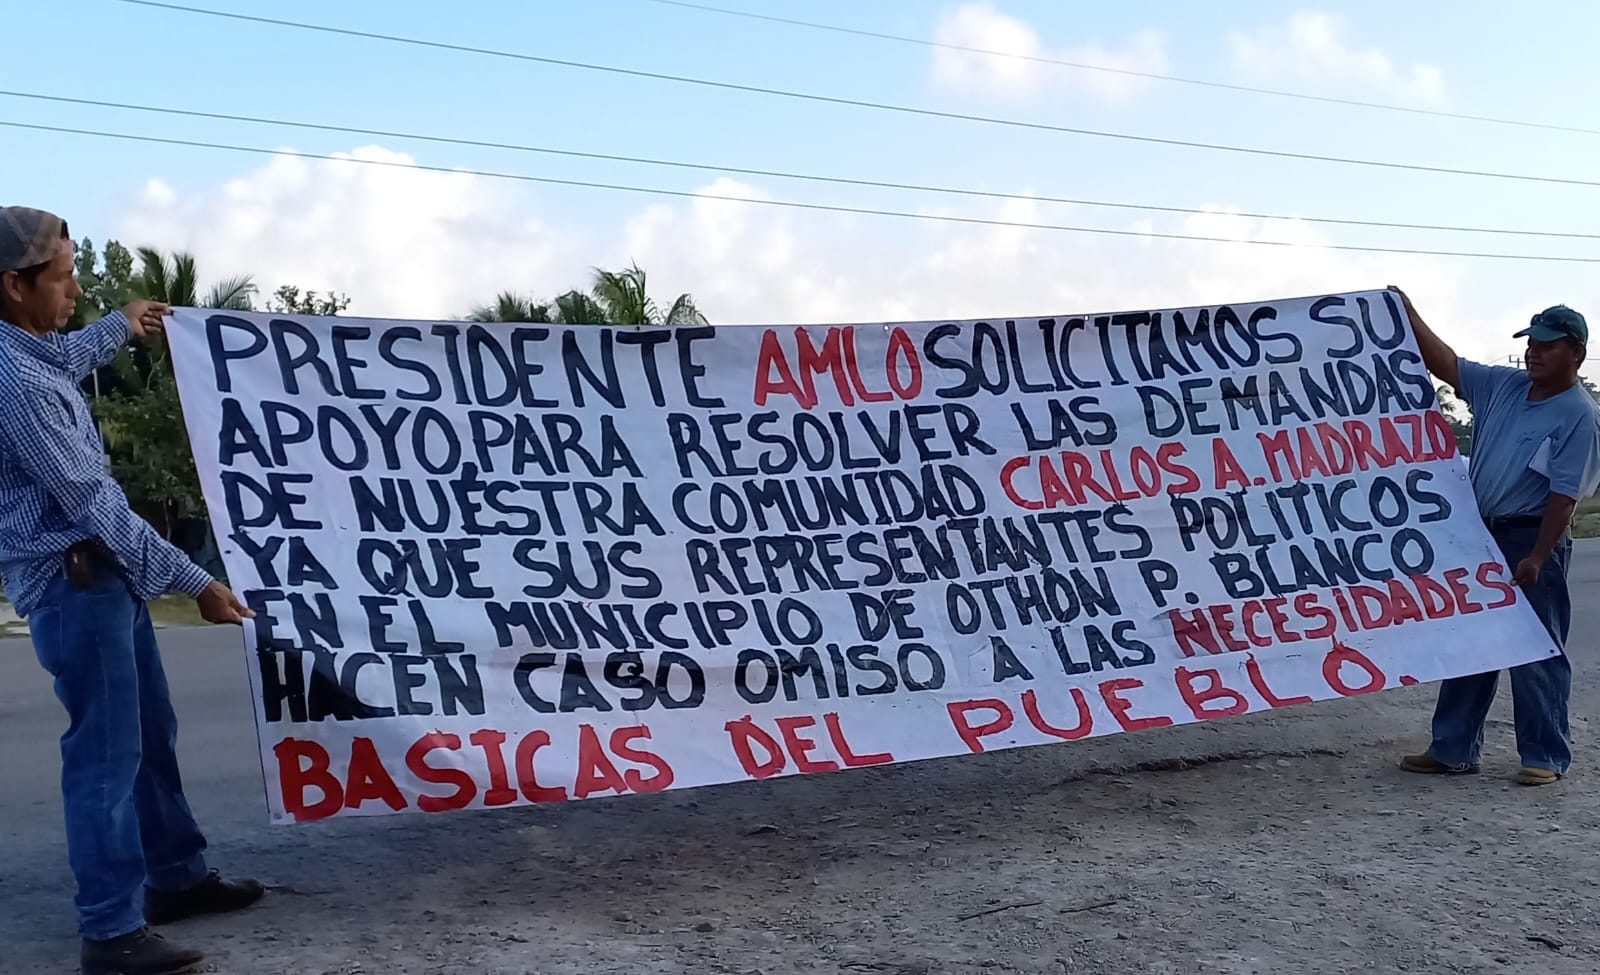 PRESIDENTE AMLO SOLICITAMOS SU
APOYO, PARA RESOLVER LAS DEMANDAS
DE NUESTRA COMUNIDAD CARLOS A. MADRAZO
YA QUE SUS REPRESENTANTES POLITICOS
EN EL MUNICIPIO DE OTHÓN P. BLANCO
HACEN CASO OMISO A LAS NECESIDADES
BASICAS DEL PUEBLO.